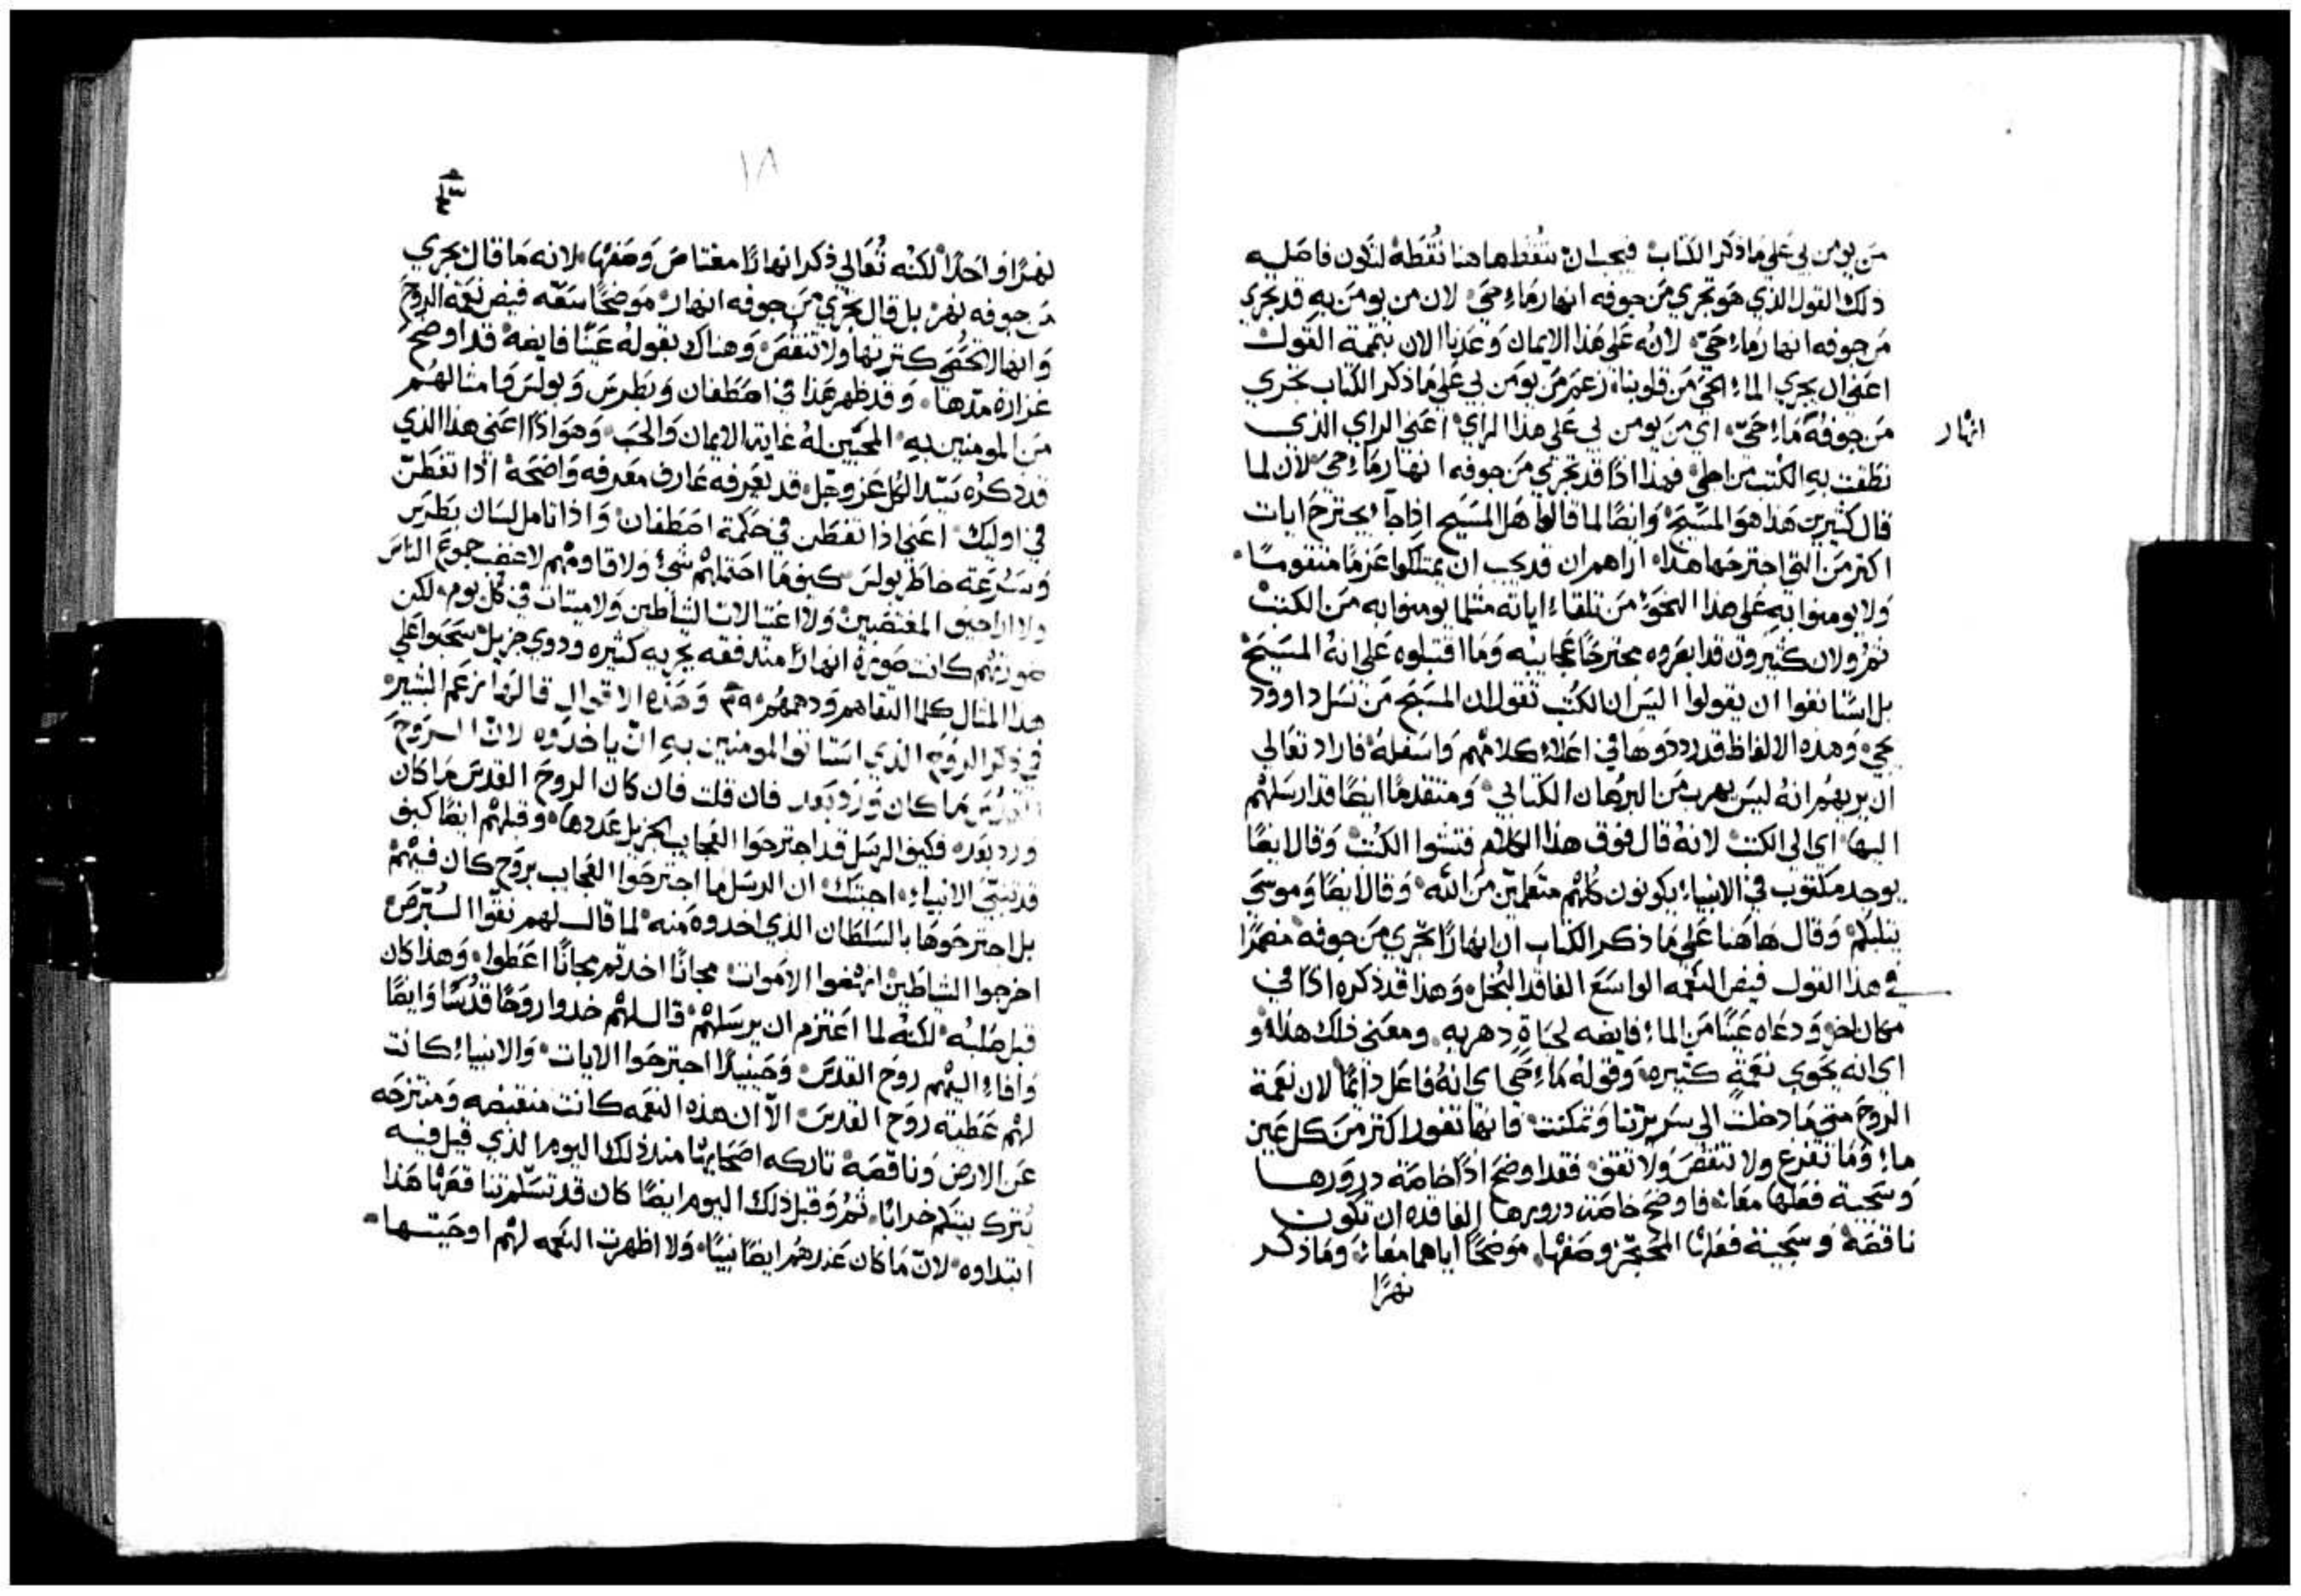 من يومن بي علي ما ذكر الكتاب فيجب ان تنقطها هنا نقطة لتكون فاصله
ذلك القول الذي هو تجري من جوفه انهار ماء حي لان من يومن به قد تجري
من جوفه انهار ماء حي لانه علي هذا الايمان وعدنا الان بتتمة القول
اعني ان يجري الماء الحي من قلوبنا زعم من يومن بي علي ما ذكر الكتاب تجري
انهار
من جوفه ماء حي اي من يومن بي علي هذا الراي اعني الراي الذي
نطقت به الكتب من اجلي فهذا اذًا قد تجري من جوفه انهار ماء حي لان لما
قال كثيرين هذا هو المسيح وايضًا لما قالوا هل المسيح اذا جاء يجترح ايات
اكثر من التي اجترحها هذا اراهم ان قد يجب ان يمتلكوا عزمًا متقومًا
ولا يومنوا به علي هذا النحو من تلقاء اياته مثلما يومنوا به من الكتب
ثم ولان كثيرون قد ابصروه مجترحًا عجايبه وما اقتبلوه علي انه المسيح
بل استانفوا ان يقولوا اليس ان الكتب تقول ان المسيح من نسل داوود
يجي وهذه الالفاظ قد رددوها في اعلاء كلامهم واسفله فاراد تعالي
ان يريهم انه ليس يهرب من البرهان الكتابي ومتقدمًا ايضًا قد ارسلهم
اليها اي الي الكتب لانه قال فوق هذا الكلام فتشوا الكتب وقال ايضًا
يوجد مكتوب في الانبياء يكونون كلهم متعلمين من الله وقال ايضًا وموسي
يثلبكم وقال هاهنا علي ما ذكر الكتاب ان انهارًا تجري من جوفه مضمرًا
في هذا القول فيض النعمه الواسع الفاقد البخل وهذا قد ذكره اذًا في
مكان اخر ودعاه عينًا من الماء فايضه لحياة دهريه ومعني ذلك هذا هو
اي انه يحوي نعمة كثيره وقوله ماء حي اي انه فاعل دائمًا لان نعمة
الروح متي ما دخلت الي سريرتنا وتمكنت فانها تفور اكثر من كل عين
ماء وما تفرغ ولا تنقص ولا تقف فقد اوضح اذًا خاصة درورها
وسجية فعلها معًا فاوضح خاصة درورها الفاقده ان تكون
ناقصة وسجية فعلها المعجز وصفها موضحًا اياهما معًا وما ذكر
نهرًا
١٨
نهرًا واحدًا لكنه تعالي ذكر انهارًا معتاص وصفها لانه ما قال يجري
من جوفه نهر بل قال تجري من جوفه انهار موضحًا سعة فيض نعمة الروح
وانها لا تحصي كثرتها ولا تنقص وهناك بقوله عينًا فايضة قد اوضح
غزارة مدها وقد ظهر هذا في اصطفان وبطرس وبولس وامثالهم
من المومنين به المحبين له غاية الايمان والحب وهو اذًا اعني هذا الذي
قد ذكره سيد الكل عز وجل قد يعرفه عارف معرفه واضحة اذا تفطن
في اوليك اعني اذا تفطن في حكمة اصطفان واذا تامل لسان بطرس
وسرعة خاطر بولس كيف ما احتملهم شي ولا قاومهم لا غضب جموع الناس
ولا اراجيف المغتصبين ولا اغتيالات الشياطين ولا ميتات في كل يوم لكن
صورتهم كانت صورة انهارًا متدفقه بجريه كثيره ودوي جزيل سحبوا علي
هذا المثال كلما التقاهم ودهمهم ٣٩ وهذه الاقوال قالها زعم البشير
في ذكر الروح الذي استانوا المومنين به ان ياخذوه لان الروح
القدس ما كان ورد بعد فان قلت فان كان الروح القدس ما كان
ورد بعد فكيف الرسل قد اجترحوا العجايب الجزيل عددها وقبلهم ايضًا كيف
قد تنبي الانبياء اجبتك ان الرسل ما اجترحوا العجايب بروح كان فيهم
بل اجترحوها بالسلطان الذي اخدوه منه لما قال لهم نقوا البرص
اخرجوا الشياطين انهضوا الاموات مجانًا اخدتم مجانًا اعطوا وهذا كان
قبل صلبه لكنه لما اعتزم ان يرسلهم قال لهم خدوا روحًا قدسًا وايضًا
وافاء اليهم روح القدس وحينيذًا اجترحوا الايات والانبياء كانت
لهم عطية روح القدس الا ان هذه النعمه كانت منقبضه ومنتزحه
عن الارض وناقصة تاركه اصحابها منذ ذلك اليوم الذي قيل فيه
يترك بيتكم خرابًا ثم وقبل ذلك اليوم ايضًا كان قد تسلم تناقصها هذا
ابتداوه لان ما كان عندهم ايضًا نبيًا ولا اظهرت النعمه لهم اوحيتها